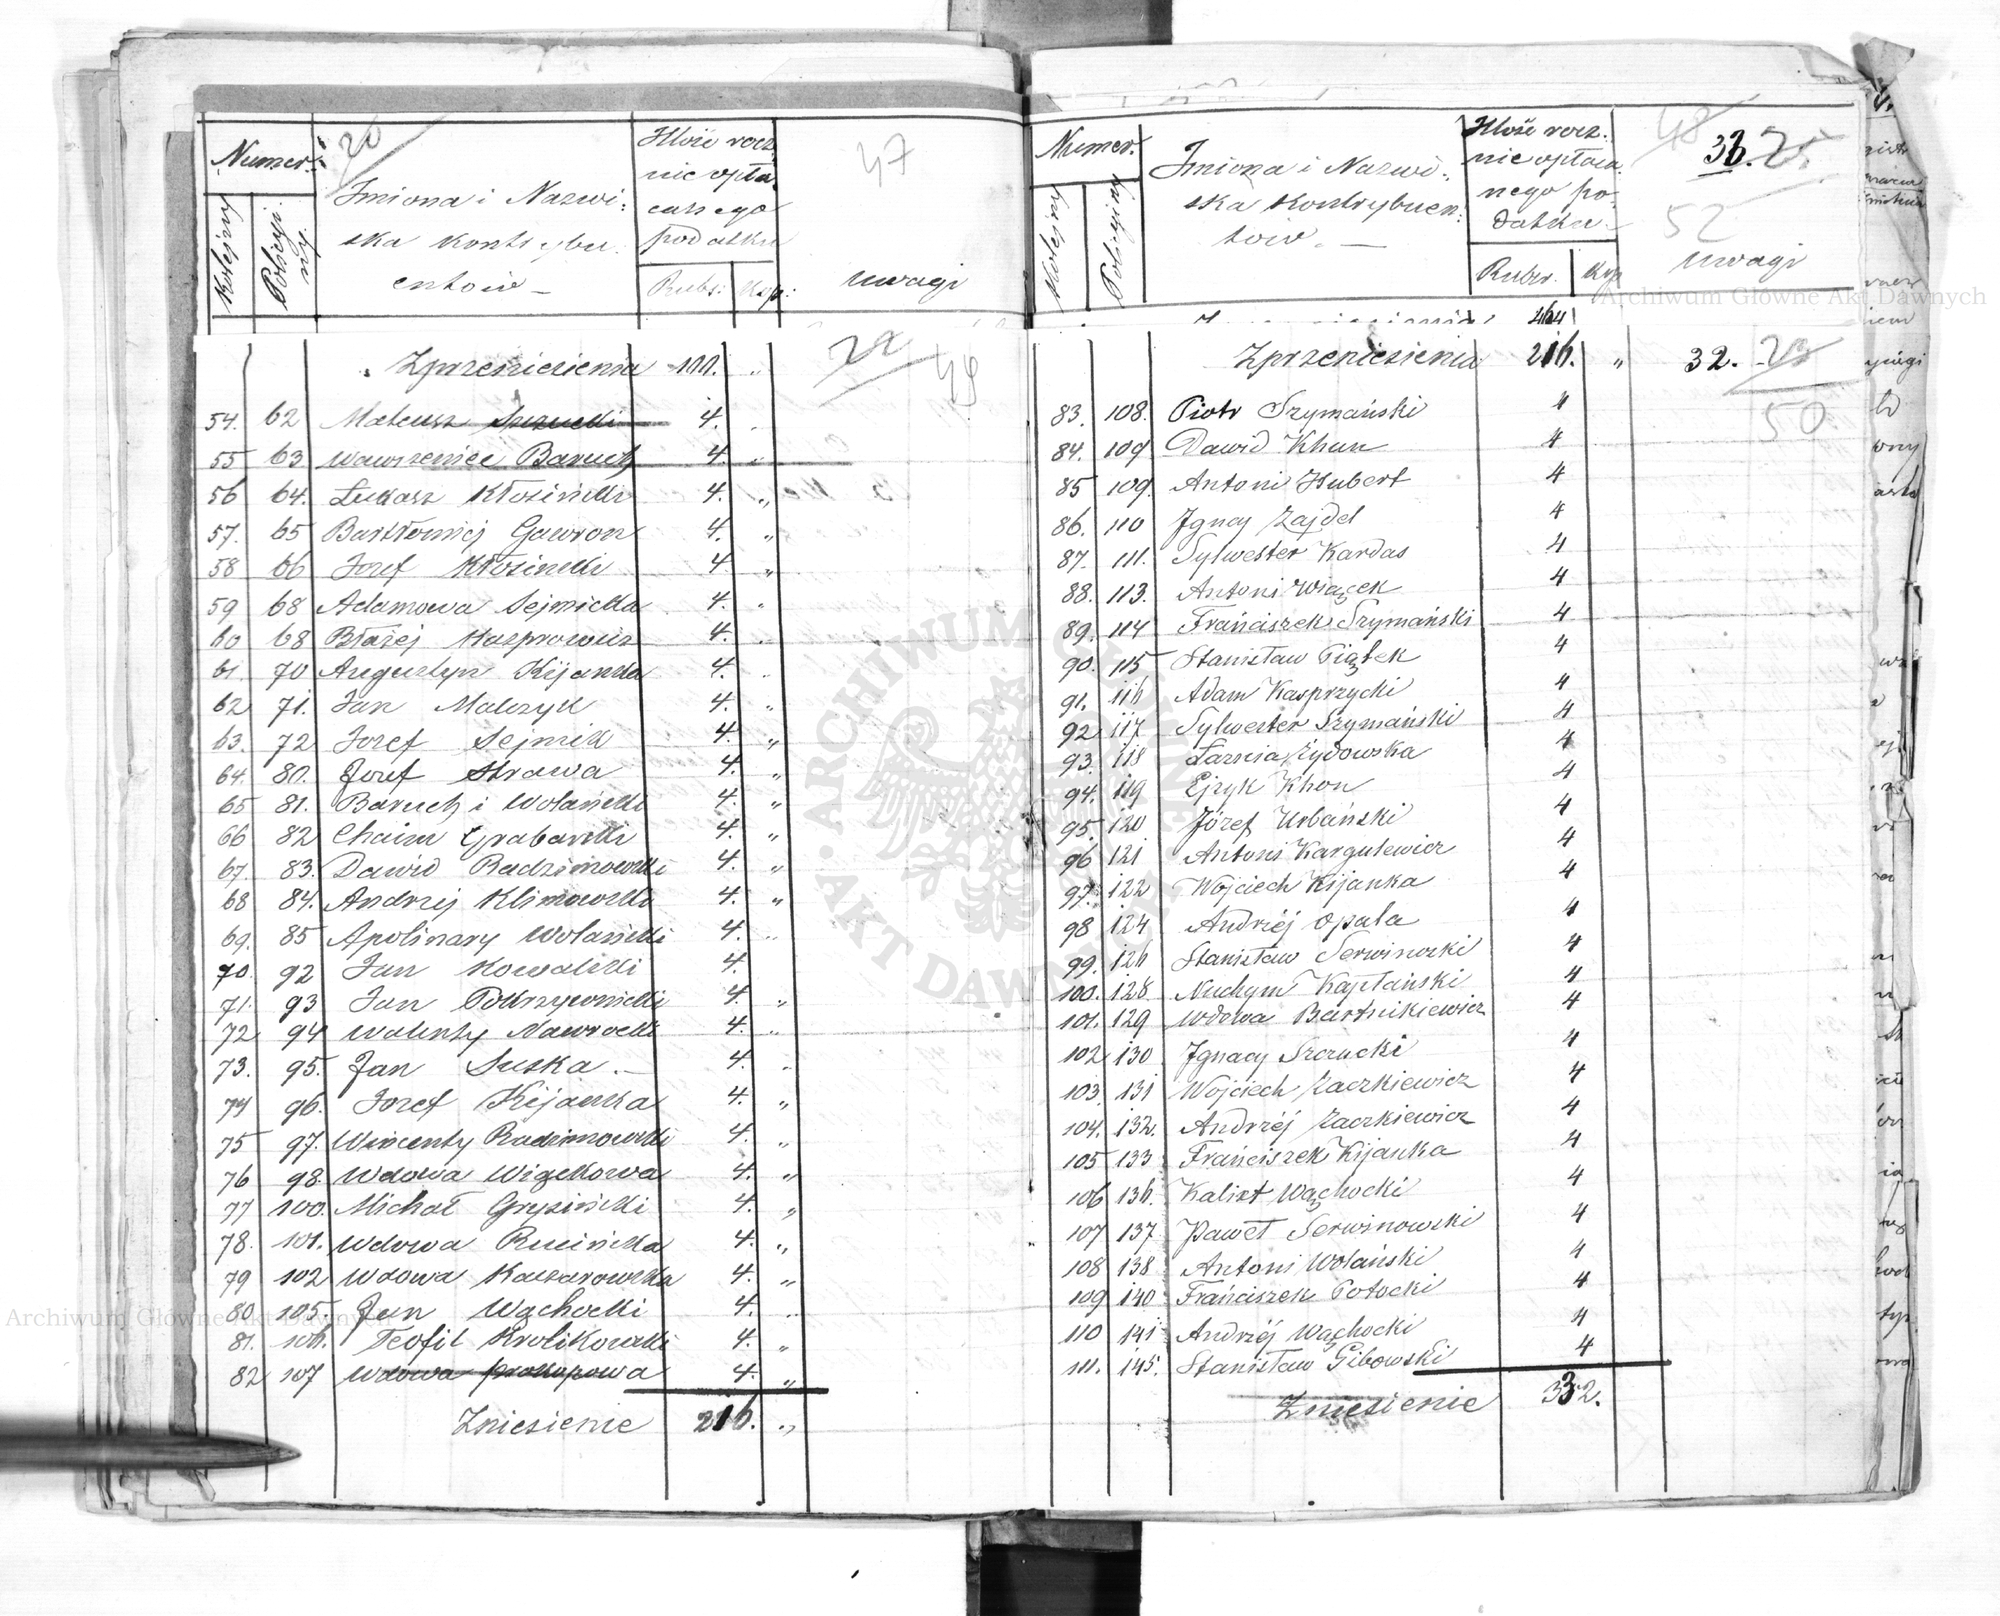 Numer.
Kolejny
Policyj:
ny.
20
Imiona i Nazwi:
ska kontrybu:
entow —
Ilość rocz
nie opła:
canego
podatku
Rubs: Kop:
47
uwagi
Zprzeniesienia 100. „
22
49
54. 62 Mateusz Szczucki 4.
55 63 Wawrzeniec Baruch 4. „
56 64. Łukasz Kłosiński 4. „
57. 65 Bartłomiej Gawron 4. „
58 66 Jozef Kłosiński 4 „
59 68 Adamowa Sejmicka 4. „
60 68 Błażej Kasprowicz 4. „
61. 70 Augustyn Kijanka 4. „
62 71. Jan Malczyk 4. „
63. 72 Jozef Sejmik 4. „
64. 80. Jozef Strawa 4. „
65 81. Baruch i Wolański 4. „
66 82 Chaim Grabarski 4. „
67. 83. Dawid Radzimowski 4. „
68 84. Andrzej Klimowski 4. „
69. 85 Apolinary Wolański 4. „
70. 92 Jan Kowalski 4.
71. 93 Jan Pokrzywnicki 4. „
72 94 Walenty Nawrocki 4. „
73. 95. Jan Suska . — 4. „
74 96. Jozef Kijanka 4. „
75 97. Wincenty Radzimowski 4. „
76 98. Wdowa Wiąckowa 4. „
77 100. Michał Grysiński 4. „
78. 101. Wdowa Rucińska 4. „
79 102 Wdowa Kaczarowska 4. „
80 105. Jan Wąchocki 4. „
81. 106. Teofil Krolikowski 4. „
82 107 Wdowa Prokopowa 4. „
Zniesienie 216. „
Numer.
Kolejny
Policyjny
Imiona i Nazwi:
ska Kontrybuen:
tow. —
Ilość rocz:
nie opłaca:
nego po:
datku
Rubsr. Kop
48
33. 25
52
uwagi
464
Zprzeniesienia 216. „ 32. 23
50
83. 108. Piotr Szymański 4
84. 109 Dawid Khun 4
85 109. Antoni Hubert 4
86. 110 Jgnacy Zajdel 4
87. 111. Sylwester Kardas 4
88. 113. Antoni Wiącek 4
89. 114 Frańciszek Szymański 4
90. 115 Stanisław Piątek 4
91. 116 Adam Kasprzycki 4
92 117 Sylwester Szymański 4
93. 118 Łaznia Żydowska 4
94. 119 Ejzyk Khon 4
95. 120 Józef Urbański 4
96 121 Antoni Kargulewicz 4
97. 122 Wojciech Kijanka 4
98 124 Andrzéj Opala 4
99. 126 Stanisław Serwinowski 4
100. 128 Nuchym Kapłański 4
101. 129 Wdowa Bartnikiewicz 4
102 130 Jgnacy Szczucki 4
103. 131 Wojciech Zaczkiewicz 4
104. 132. Andrzéj Zaczkiewicz 4
105 133 Frańciszek Kijanka 4
106 136. Kalixt Wąchocki 4
107 137 Paweł Serwinowski 4
108 138 Antoni Wolański 4
109 140 Frańciszek Potocki 4
110 141 Andrzéj Wąchocki 4
111. 145. Stanisław Gibowski 4
Zniesienie 332.
Archiwum Główne Akt Dawnych
Archiwum Główne Akt Dawnych
ARCHIWUM GŁÓWNE AKT DAWNYCH